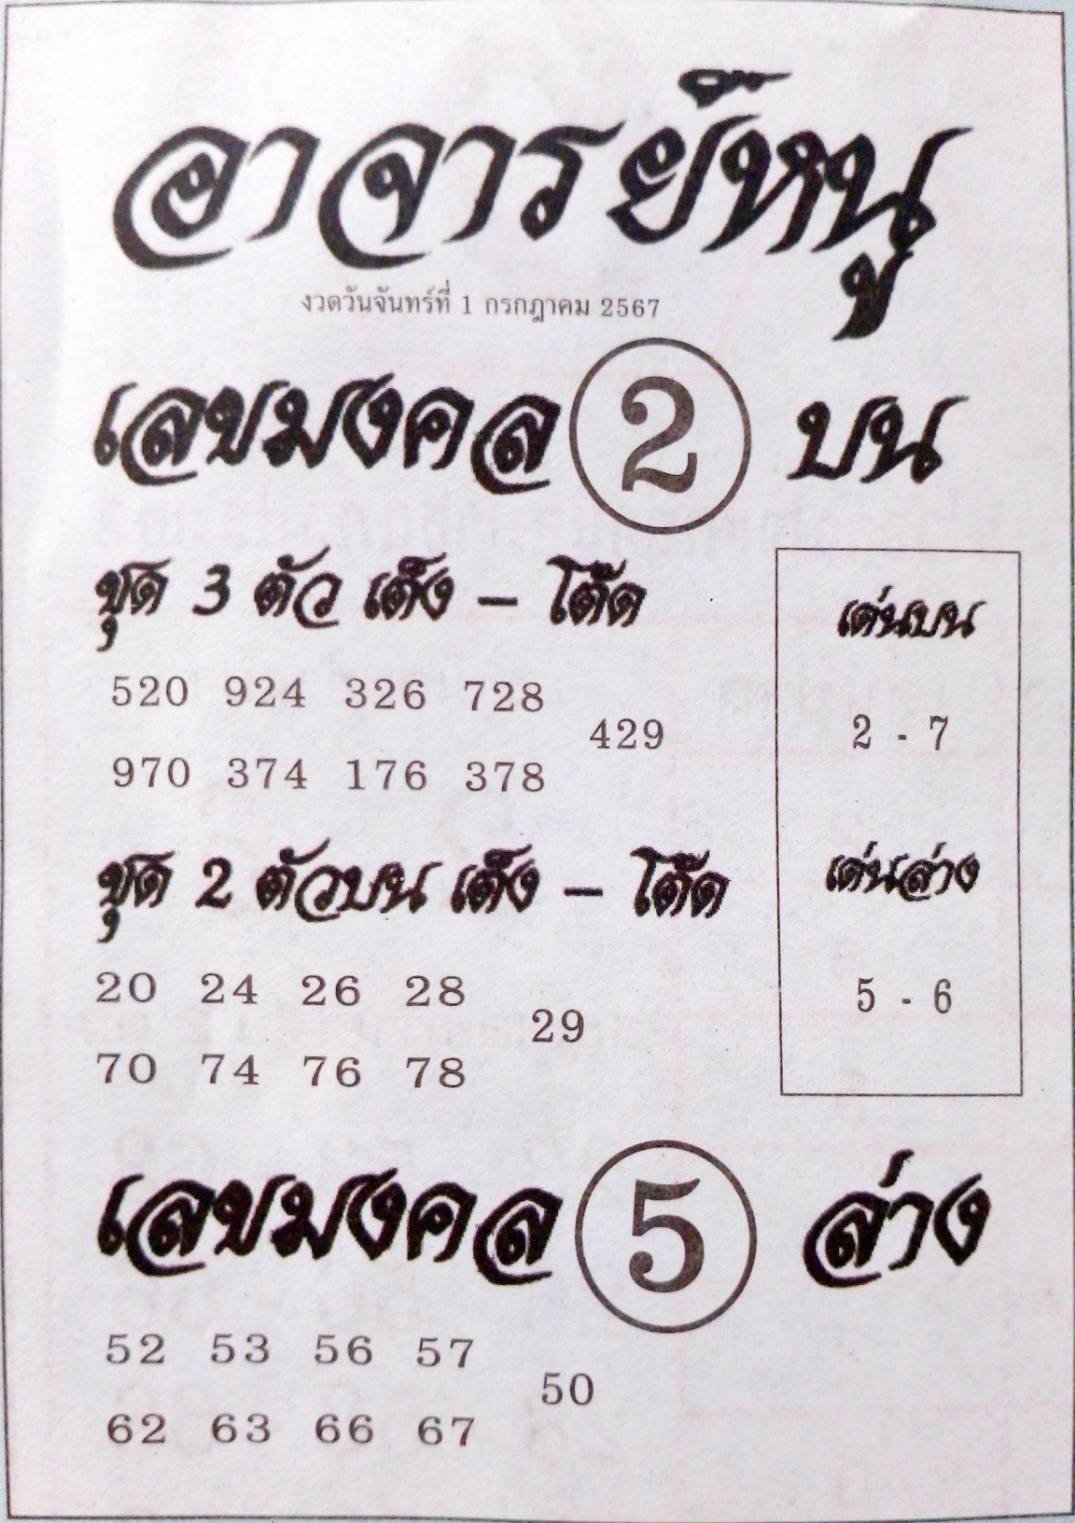 อาจารย์หนู
งวดวันจันทร์ที่ 1 กรกฎาคม 2567
เลขมงคล 2 บน
ชุด 3 ตัว เต็ง – โต๊ด
520 924 326 728
429
970 374 176 378
ชุด 2 ตัวบน เต็ง – โต๊ด
20 24 26 28
29
70 74 76 78
เด่นบน
2 - 7
เด่นล่าง
5 - 6
เลขมงคล 5 ล่าง
52 53 56 57
50
62 63 66 67